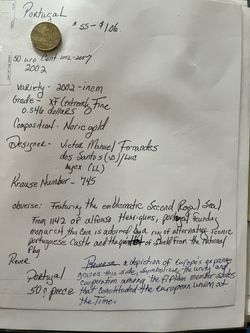 Portugal
$ .55 - $1.06
50 uro Cent 2002-2007
2002
Variety - 2002 - incm
Grade - XF (extremly Fine
0.546 dollars
Composition - Noric gold
Designer - Victor Manuel Fernandes
dos Santos (VS)/LUC
Luycx (LL)
Krause Number - 745
obverse: Featuring the emblematic Second Royal Seal
From 1142 of alfonso Henriques, portugal founding
monarch this coin is adorned by a rim of alternating iconic
portuguese Castle and the of Shield from the National
Flag
Reverse a depiction of europe's expanse
graces this side, symbolizing the unity and
cooperation among the fifteen member states
that constituted the european union at
the Time.
Portugal
50 ¢ piece